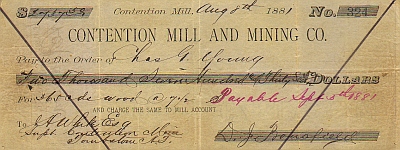 Contention Mill, Aug 8th 1881 No. 324
CONTENTION MILL AND MINING CO.
Pay to the Order of Chas G. Young
Two Thousand Seven Hundred DOLLARS
For 365 cds wood a 7 Payable Sept 5th 1881
AND CHARGE THE SAME TO MILL ACCOUNT.
To J A White Esq
Supt Contention Mine
Tombstone A.T.